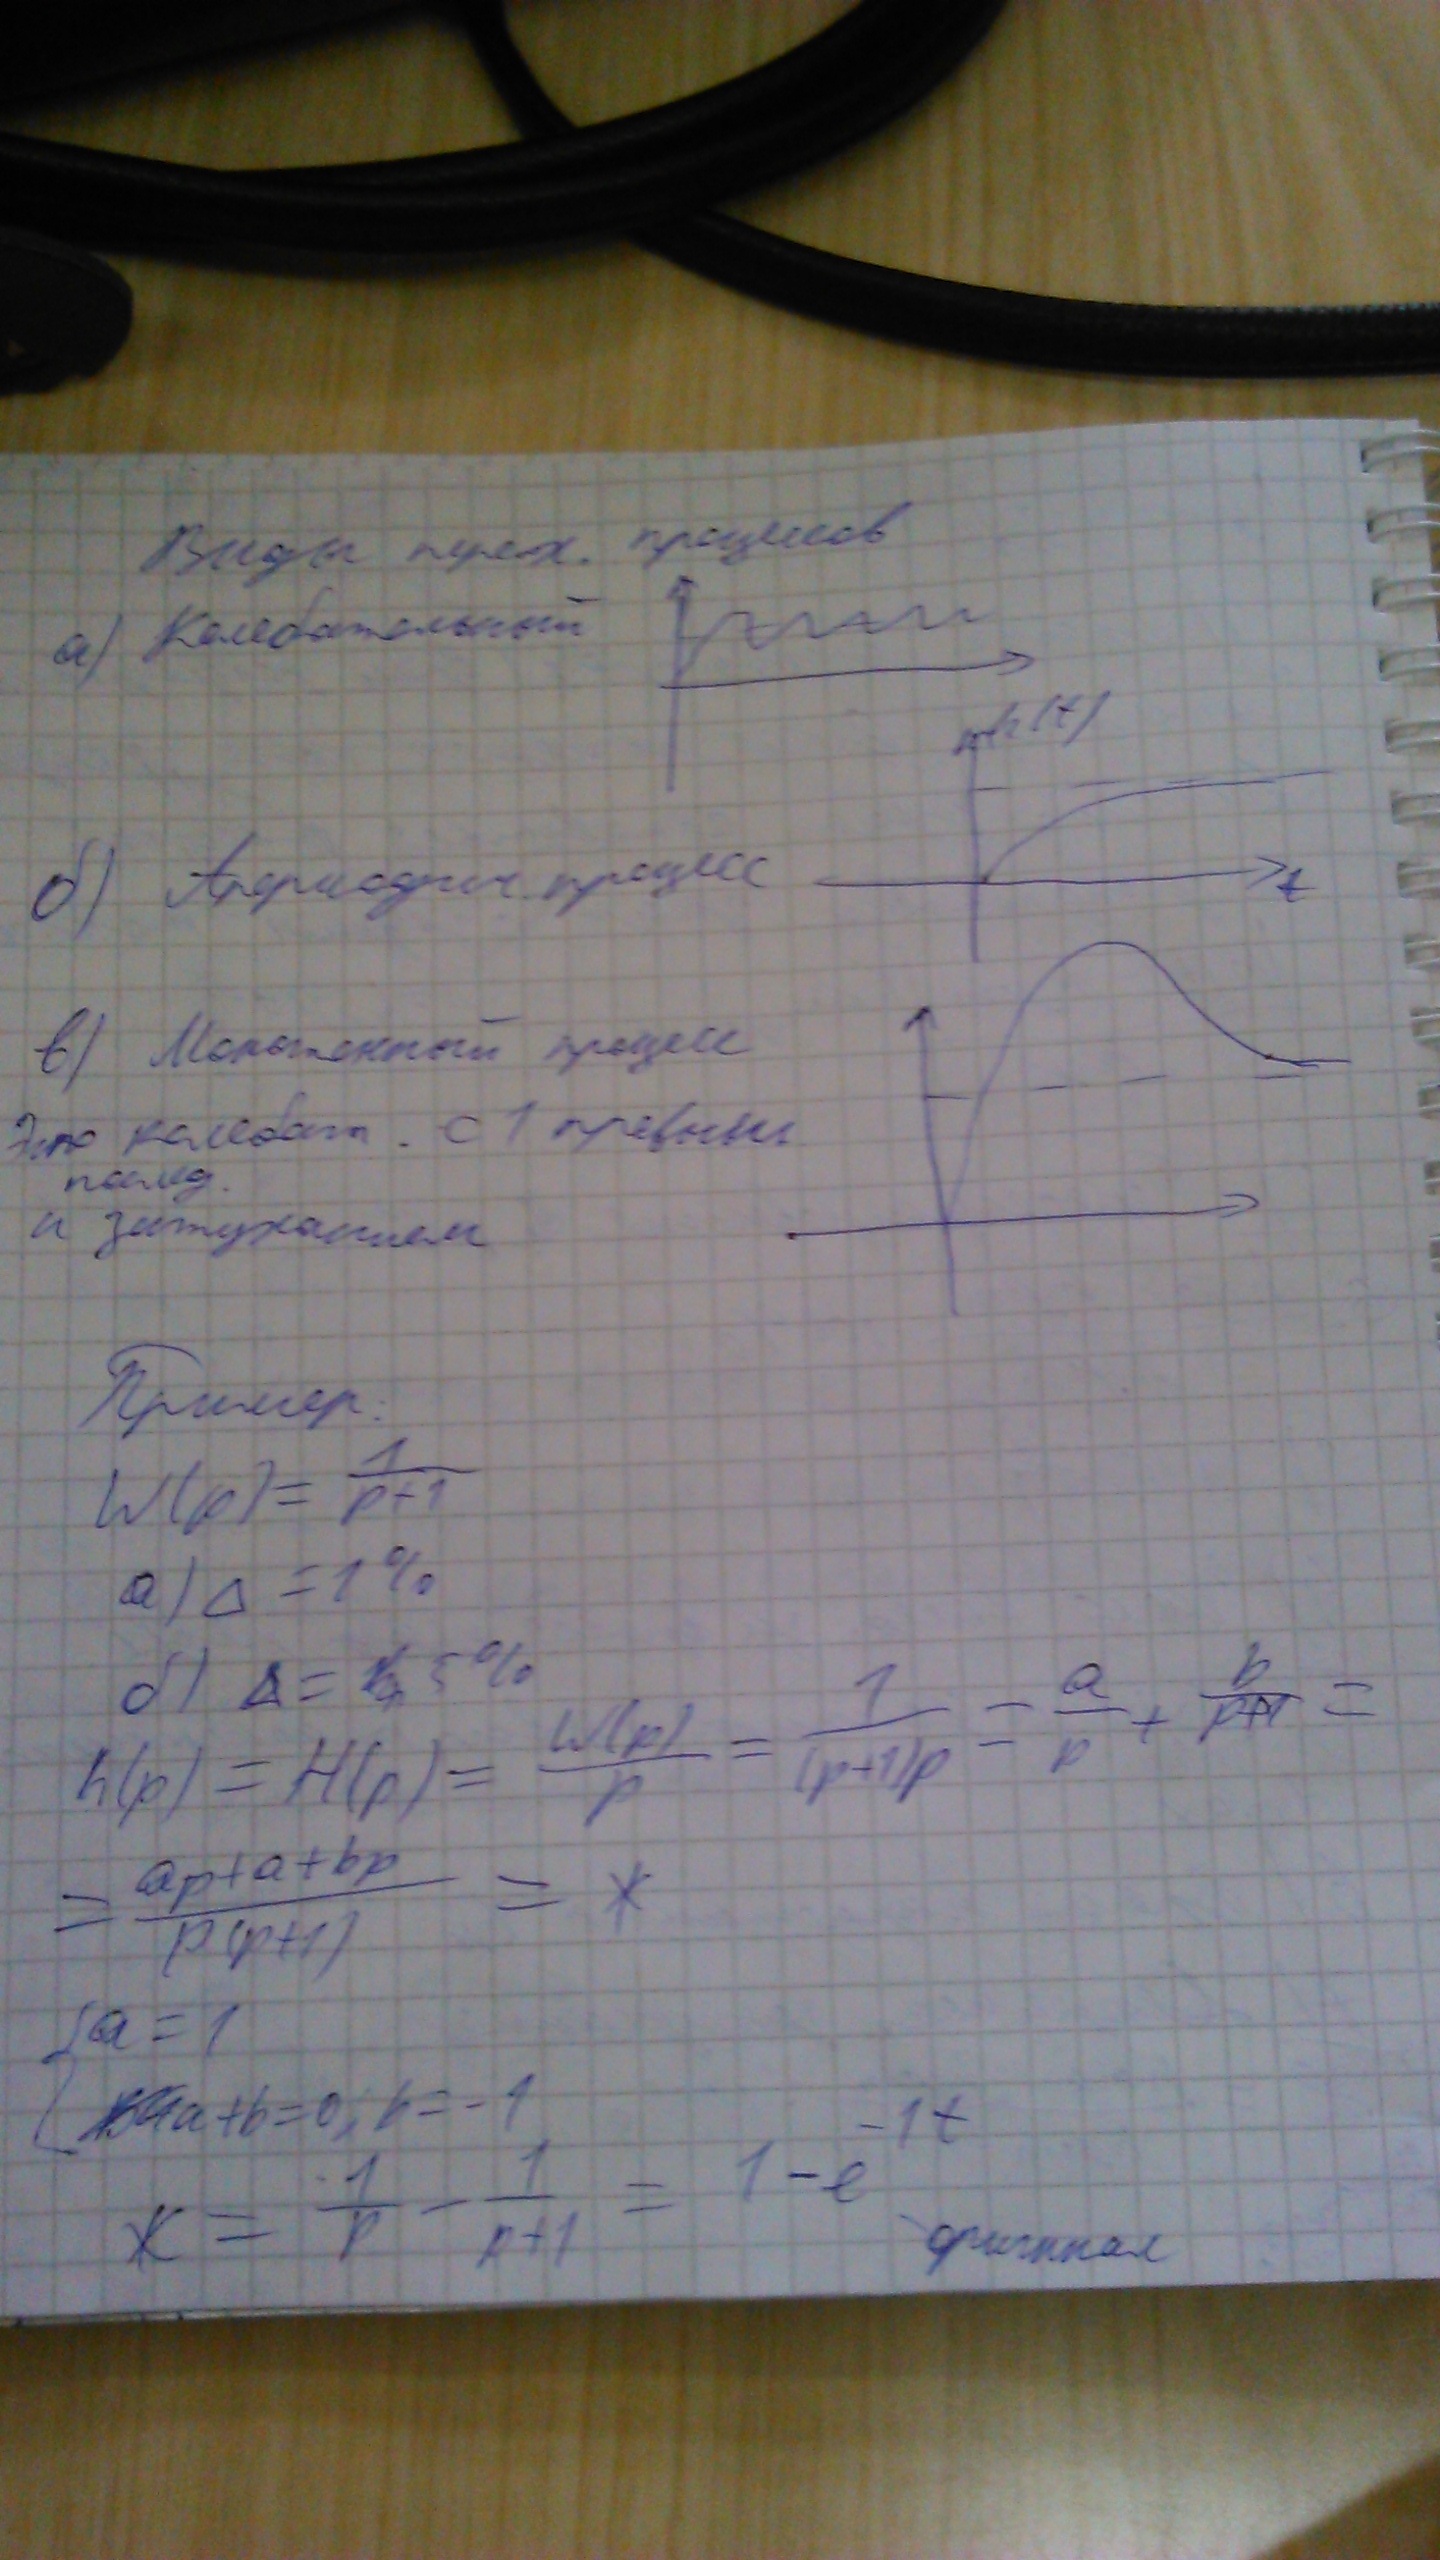 Виды перех. процессов
а) Колебательный
h(t)
б) Апериодич. процесс
t
в) Монотонный процесс
Это колебат. с 1 превыш
послед.
и затуханием
Пример:
W(p) = 1/(p+1)
а) Δ = 1%
б) Δ = 5%
h(p) = H(p) = W(p)/p = 1/((p+1)p) = a/p + b/(p+1) =
= (ap+a+bp)/(p(p+1)) = *
{a = 1
a+b=0; b=-1
* = 1/p - 1/(p+1) = 1 - e^(-1t)
оригинал